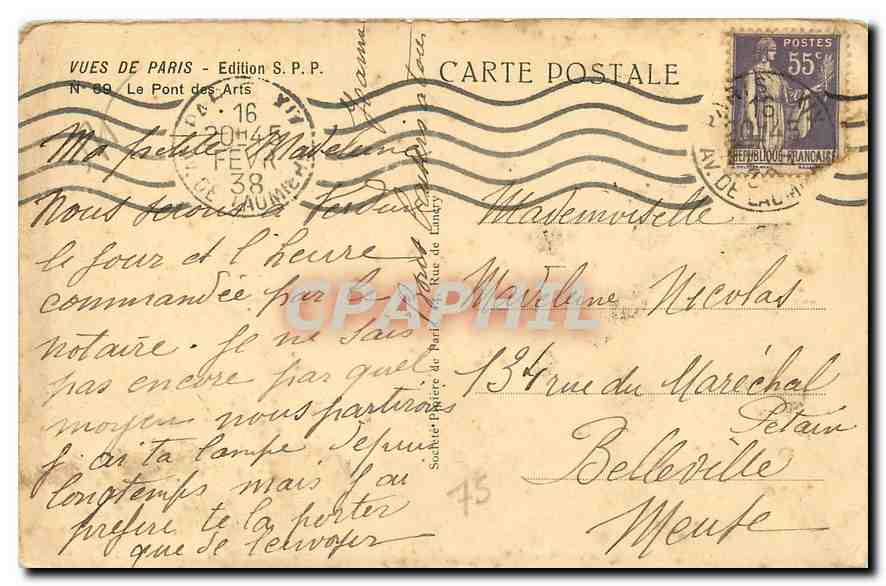 VUES DE PARIS - Edition S. P. P.
N° 69 Le Pont des Arts
CARTE POSTALE
POSTES
55c
REPUBLIQUE FRANCAISE
PARIS XIX
16
20H45
FEVR
38
AV. DE LAUMIERE
Ma petite Madeleine
Nous serons à Verdun
le jour et l'heure
commandée par le
notaire. Je ne sais
pas encore par quel
moyen nous partirons
j'ai ta lampe depuis
longtemps mais j'ai
préféré te la porter
que de l'envoyer
Mademoiselle
Madeleine Nicolas
134 rue du Maréchal
Petain
Belleville
Meuse
Rue de Landry
75
CPAPHIL